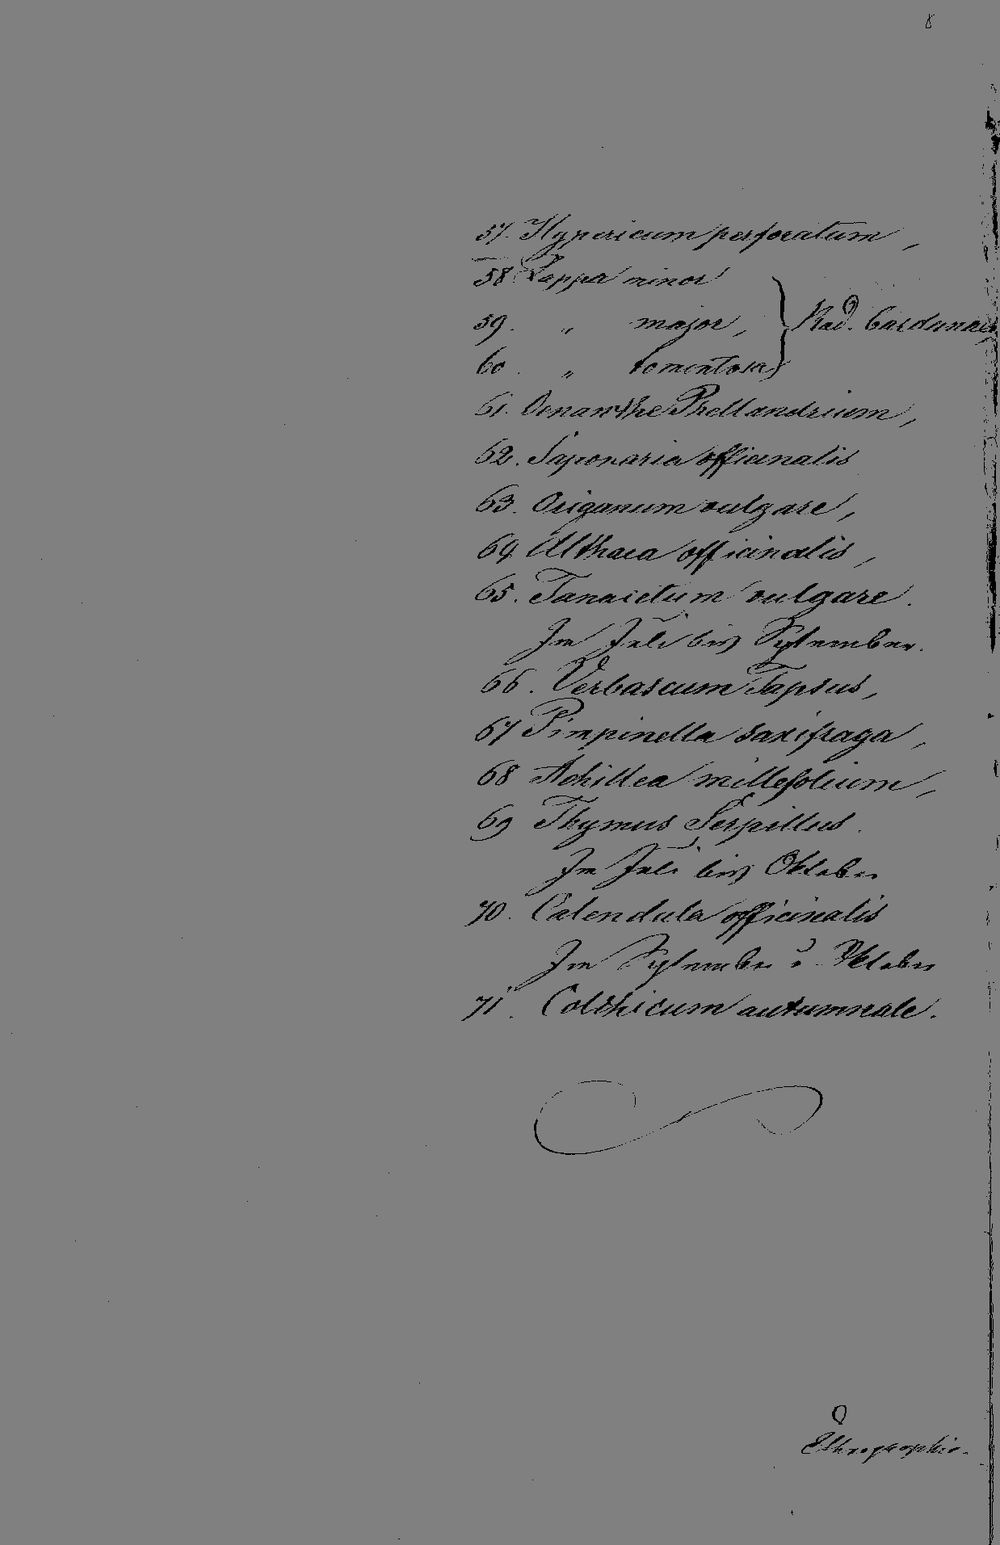 8
57. Hypericum perforatum,
58 Lappa minor
59. " major, } Rad. Bardanae
60. " tomentosa,
61. Oenanthe Phellandrium,
62. Saponaria officinalis
63. Origanum vulgare,
64 Althaea officinalis,
65. Tanacetum vulgare.
Im Juli bis September.
66. Verbascum Tapsus,
67 Pimpinella saxifraga,
68 Achillea millefolium,
69 Thymus Serpillus.
Im Juli bis Oktober
70. Calendula officinalis
Im September u. Oktober
71. Colchicum autumnale.
Ethnographie.